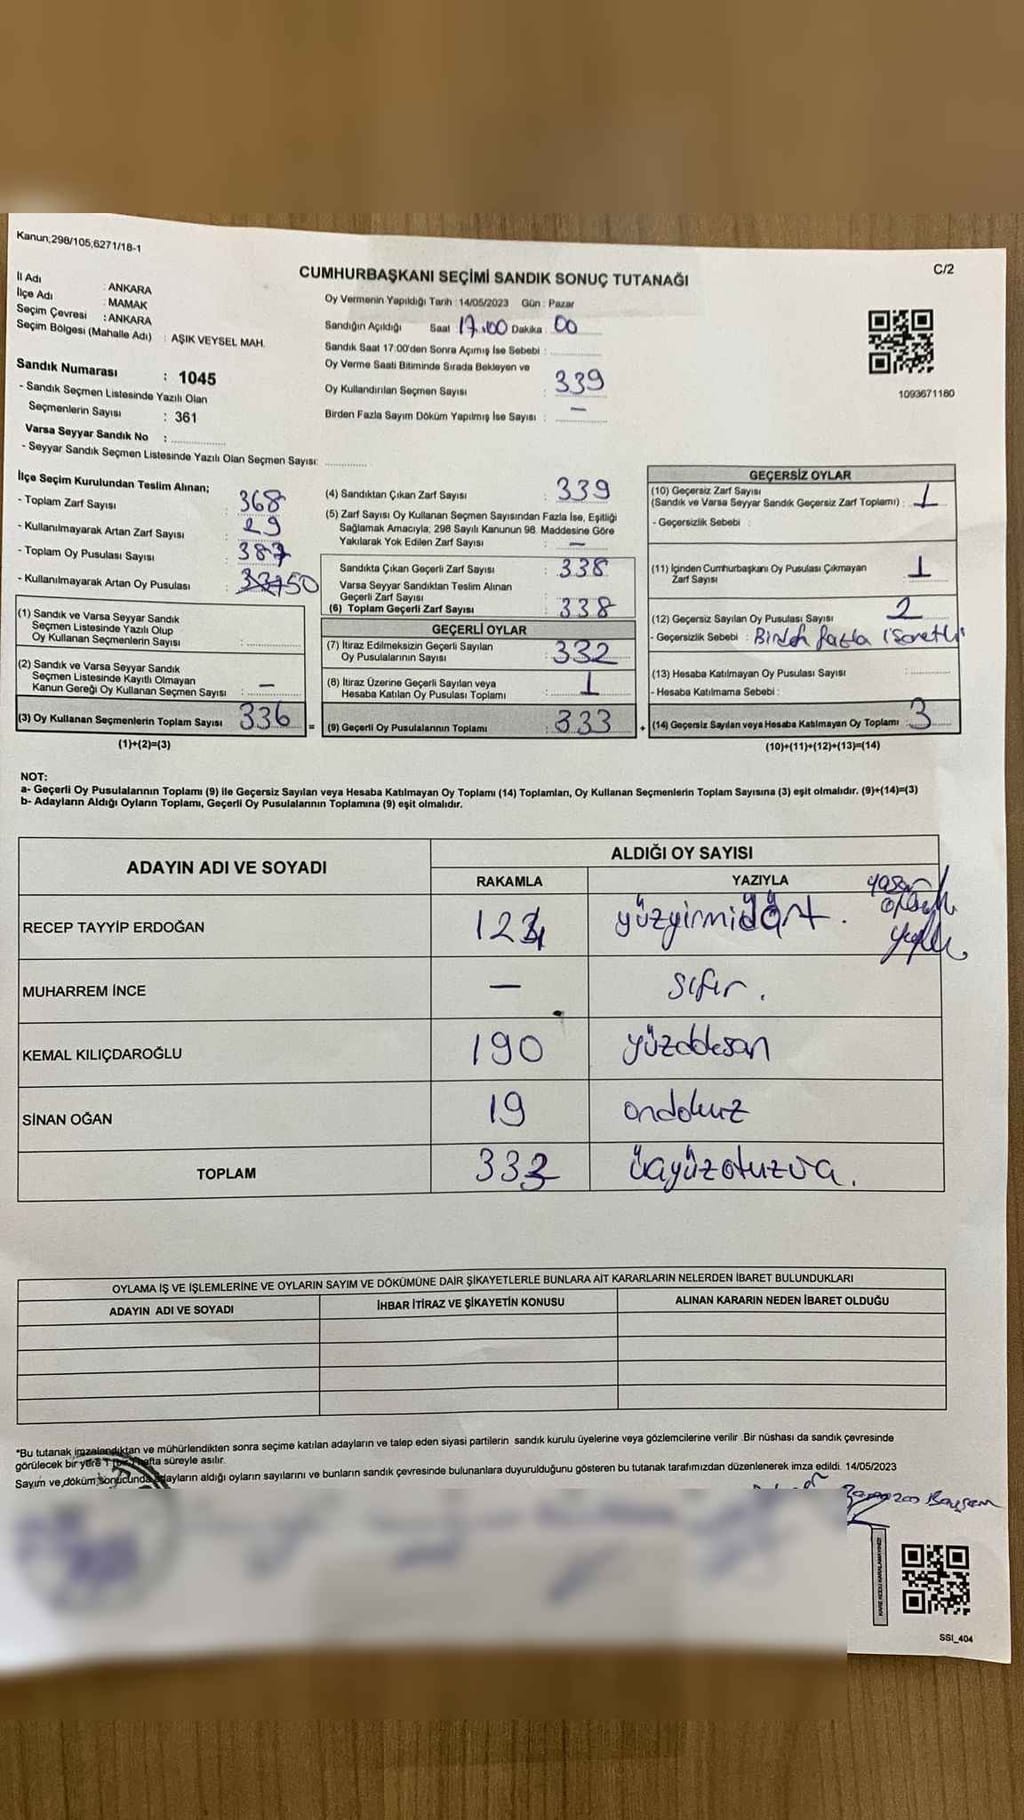 Kanun;298/105,6271/18-1
C/2
CUMHURBAŞKANI SEÇİMİ SANDIK SONUÇ TUTANAĞI
İl Adı : ANKARA
İlçe Adı : MAMAK
Seçim Çevresi : ANKARA
Seçim Bölgesi (Mahalle Adı) : AŞIK VEYSEL MAH.
Sandık Numarası : 1045
- Sandık Seçmen Listesinde Yazılı Olan
Seçmenlerin Sayısı : 361
Varsa Seyyar Sandık No :
- Seyyar Sandık Seçmen Listesinde Yazılı Olan Seçmen Sayısı:
Oy Vermenin Yapıldığı Tarih : 14/05/2023 Gün : Pazar
Sandığın Açıldığı Saat 17:00 Dakika : 00
Sandık Saat 17:00'den Sonra Açımış İse Sebebi :
Oy Verme Saati Bitiminde Sırada Bekleyen ve
Oy Kullandırılan Seçmen Sayısı : 339
Birden Fazla Sayım Döküm Yapılmış İse Sayısı : —
1093671180
İlçe Seçim Kurulundan Teslim Alınan;
- Toplam Zarf Sayısı : 368
- Kullanılmayarak Artan Zarf Sayısı : 29
- Toplam Oy Pusulası Sayısı : 387
- Kullanılmayarak Artan Oy Pusulası : 50
(1) Sandık ve Varsa Seyyar Sandık
Seçmen Listesinde Yazılı Olup
Oy Kullanan Seçmenlerin Sayısı :
(2) Sandık ve Varsa Seyyar Sandık
Seçmen Listesinde Kayıtlı Olmayan
Kanun Gereği Oy Kullanan Seçmen Sayısı : —
(3) Oy Kullanan Seçmenlerin Toplam Sayısı 336 =
(1)+(2)=(3)
(4) Sandıktan Çıkan Zarf Sayısı : 339
(5) Zarf Sayısı Oy Kullanan Seçmen Sayısından Fazla İse, Eşitliği
Sağlamak Amacıyla; 298 Sayılı Kanunun 98. Maddesine Göre
Yakılarak Yok Edilen Zarf Sayısı : —
Sandıkta Çıkan Geçerli Zarf Sayısı : 338
Varsa Seyyar Sandıktan Teslim Alınan
Geçerli Zarf Sayısı :
(6) Toplam Geçerli Zarf Sayısı : 338
GEÇERLİ OYLAR
(7) İtiraz Edilmeksizin Geçerli Sayılan
Oy Pusulalarının Sayısı : 332
(8) İtiraz Üzerine Geçerli Sayılan veya
Hesaba Katılan Oy Pusulası Toplamı : 1
(9) Geçerli Oy Pusulalarının Toplamı : 333 +
GEÇERSİZ OYLAR
(10) Geçersiz Zarf Sayısı
(Sandık ve Varsa Seyyar Sandık Geçersiz Zarf Toplamı) : 1
- Geçersizlik Sebebi :
(11) İçinden Cumhurbaşkanı Oy Pusulası Çıkmayan
Zarf Sayısı : 1
(12) Geçersiz Sayılan Oy Pusulası Sayısı : 2
- Geçersizlik Sebebi : Birden fazla işaretli
(13) Hesaba Katılmayan Oy Pusulası Sayısı :
- Hesaba Katılmama Sebebi :
(14) Geçersiz Sayılan veya Hesaba Katılmayan Oy Toplamı : 3
(10)+(11)+(12)+(13)=(14)
NOT:
a- Geçerli Oy Pusulalarının Toplamı (9) ile Geçersiz Sayılan veya Hesaba Katılmayan Oy Toplamı (14) Toplamları, Oy Kullanan Seçmenlerin Toplam Sayısına (3) eşit olmalıdır. (9)+(14)=(3)
b- Adayların Aldığı Oyların Toplamı, Geçerli Oy Pusulalarının Toplamına (9) eşit olmalıdır.
ADAYIN ADI VE SOYADI
ALDIĞI OY SAYISI
RAKAMLA YAZIYLA
RECEP TAYYİP ERDOĞAN 124 yüzyirmidört.
MUHARREM İNCE — sıfır.
KEMAL KILIÇDAROĞLU 190 yüzdoksan
SİNAN OĞAN 19 ondokuz
TOPLAM 333 üçyüzotuzüç.
OYLAMA İŞ VE İŞLEMLERİNE VE OYLARIN SAYIM VE DÖKÜMÜNE DAİR ŞİKAYETLERLE BUNLARA AİT KARARLARIN NELERDEN İBARET BULUNDUKLARI
ADAYIN ADI VE SOYADI İHBAR İTİRAZ VE ŞİKAYETİN KONUSU ALINAN KARARIN NEDEN İBARET OLDUĞU
*Bu tutanak imzalandıktan ve mühürlendikten sonra seçime katılan adayların ve talep eden siyasi partilerin sandık kurulu üyelerine veya gözlemcilerine verilir. Bir nüshası da sandık çevresinde
görülecek bir yere 1 (bir) hafta süreyle asılır.
Sayım ve döküm sonucunda adayların aldığı oyların sayılarını ve bunların sandık çevresinde bulunanlara duyurulduğunu gösteren bu tutanak tarafımızdan düzenlenerek imza edildi. 14/05/2023
SSI_404